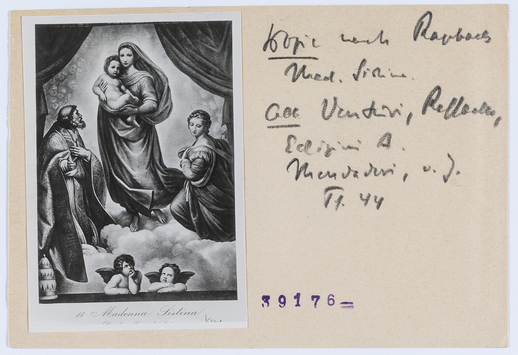 Kopie nach Raphaels
Mad. Sistina.
aus Venturi, Raffaello,
Edizioni A.
Mondadori, o. J.
Tf. 44
39176
Madonna Sistina